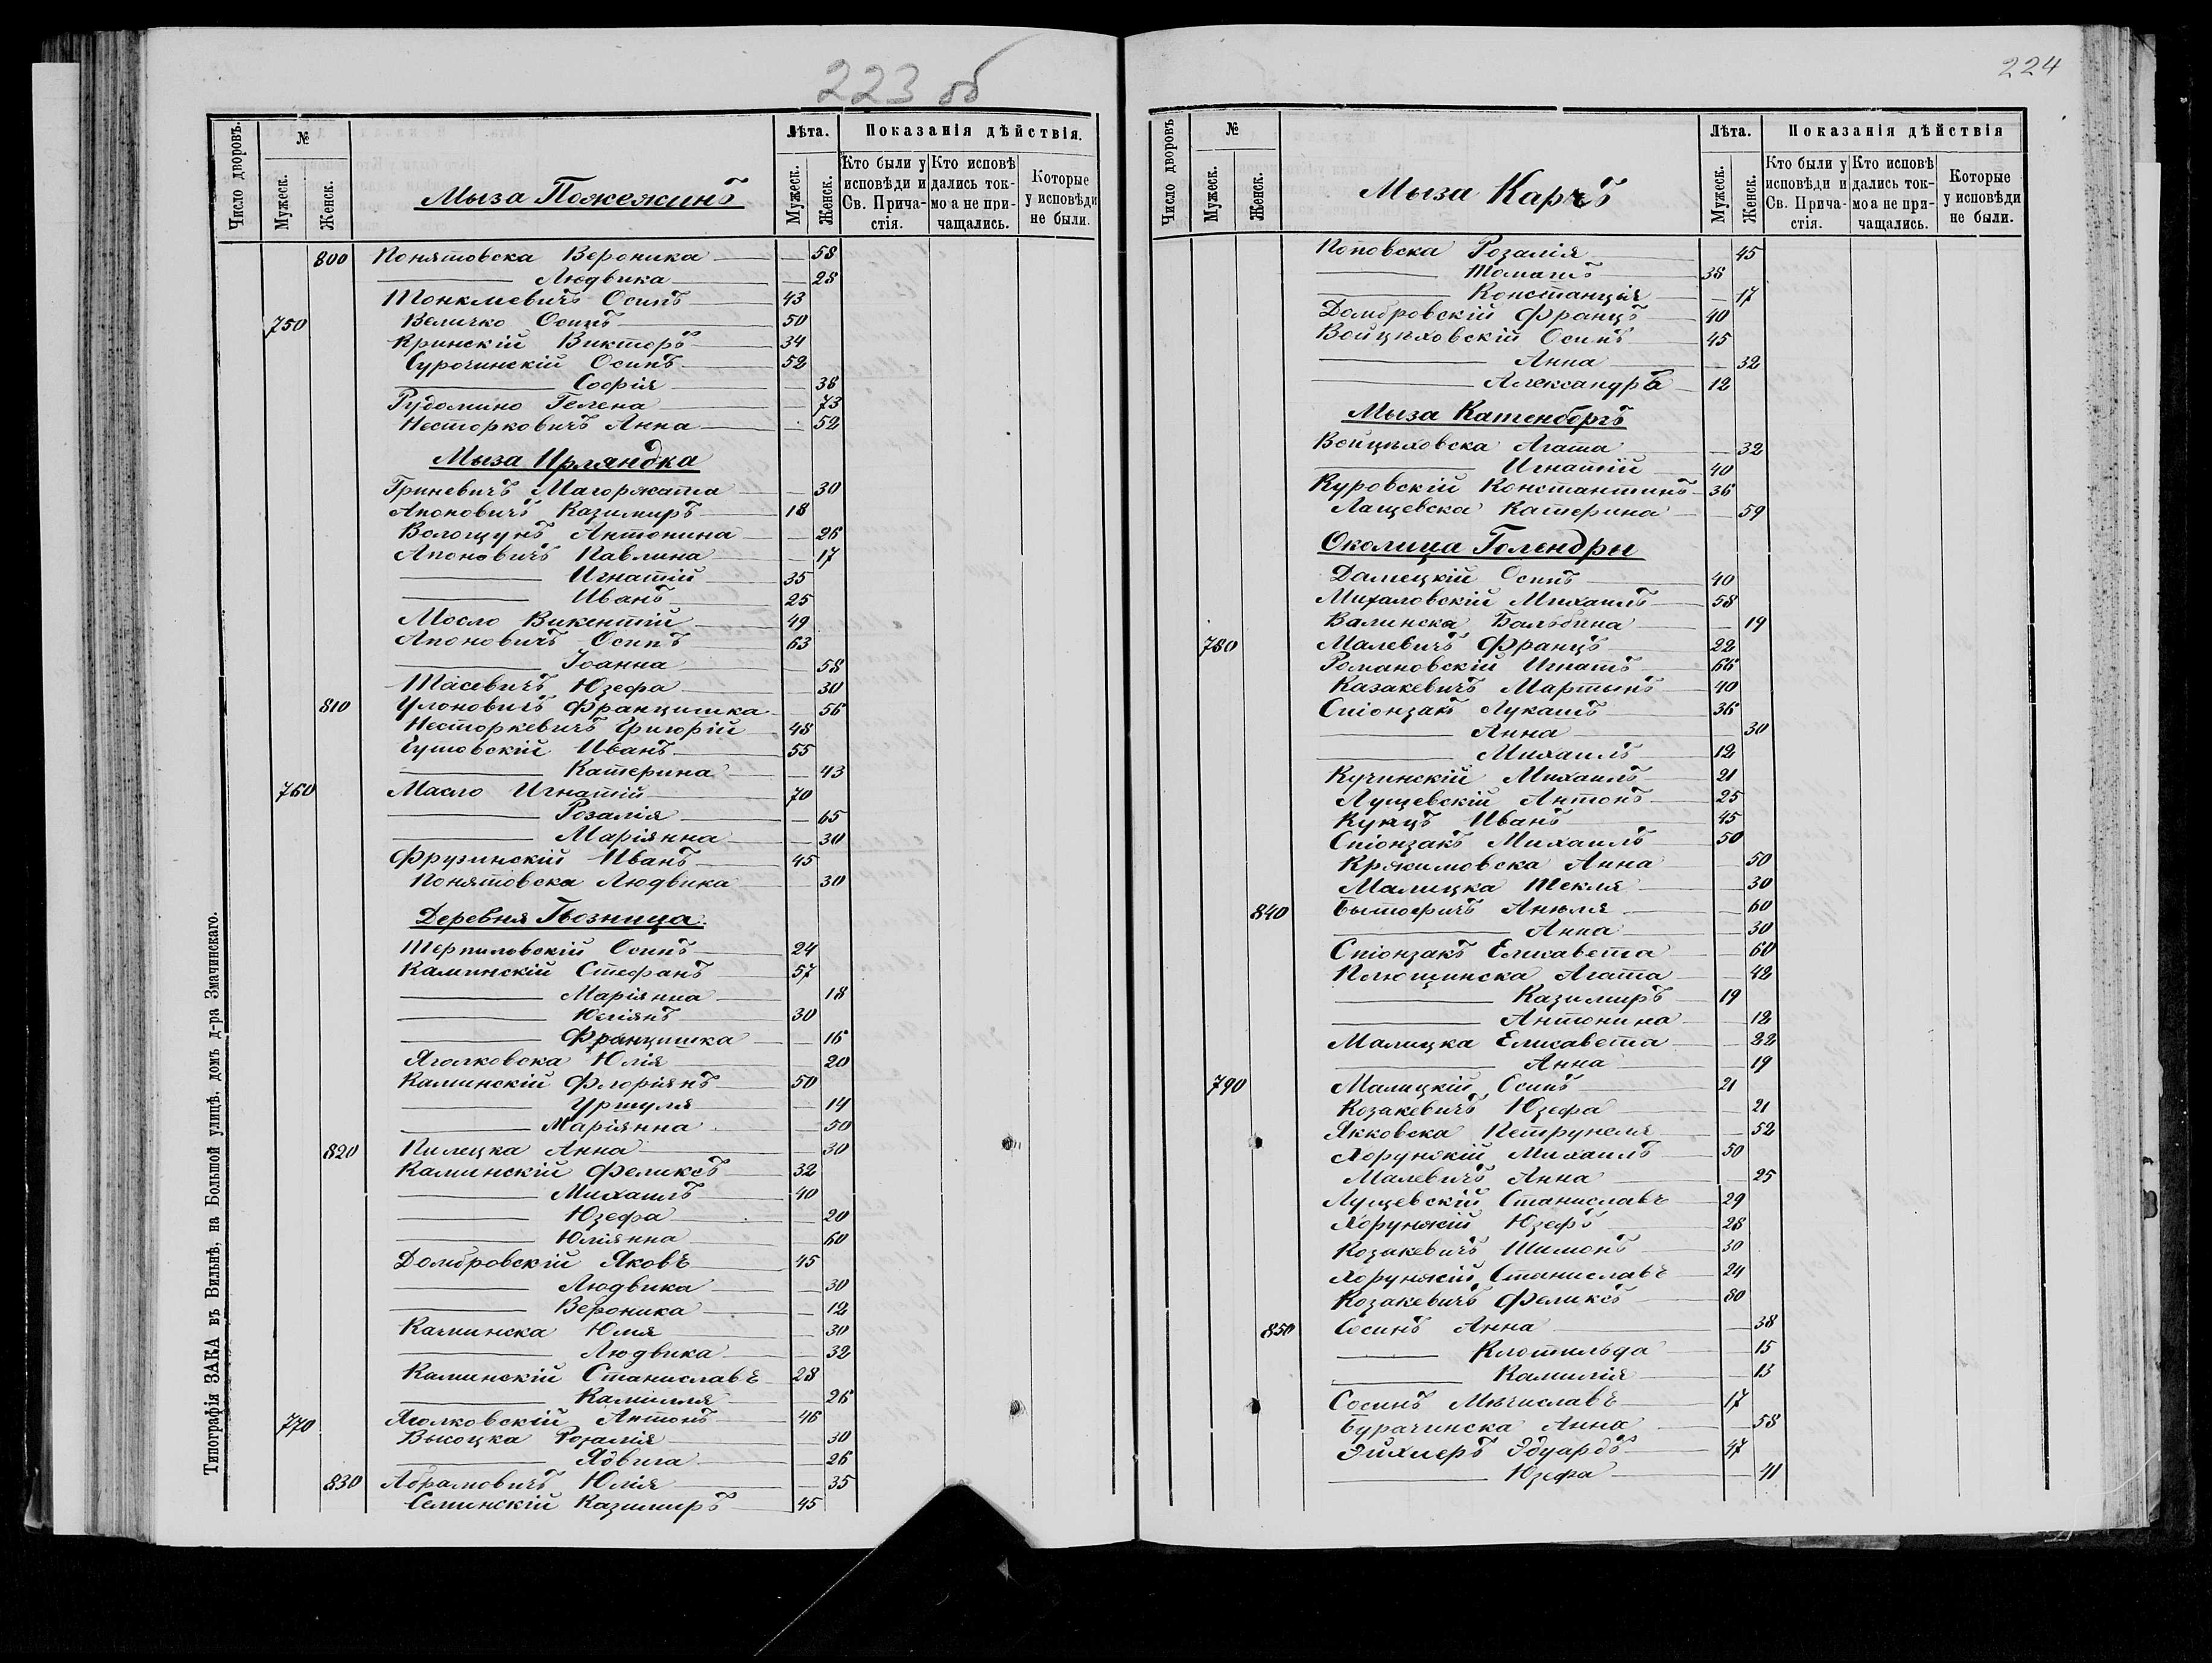 223 об
Число дворовъ.
№
Мужеск.
Женск.
Мыза Пожежинъ
Лѣта.
Мужеск.
Женск.
Показанія дѣйствія.
Кто были у исповѣди и Св. Причастія.
Кто исповѣдались токмо а не причащались.
Которые у исповѣди не были.
800 Понятовска Вероника — 58
— Людвика — 28
Тонклевичъ Осипъ 43
750 Величко Осипъ 50
Кринскій Викторъ 34
Сурочинскій Осипъ 52
— Софія — 38
Рудомино Гелена — 73
Несторковичъ Анна — 52
Мыза Ирляндка
Гриневичъ Магоржата — 30
Апоновичъ Казимиръ 18
Волощунъ Антонина — 26
Апоновичъ Павлина — 17
— Игнатій 35
— Иванъ 25
Мосло Викентій 49
Апоновичъ Осипъ 63
— Іоанна 58
Тасевичъ Юзефа 30
810 Улоновичъ Францишка — 56
Несторкевичъ Григорій 48
Гутовскій Иванъ 55
— Катерина — 43
760 Масло Игнатій 70
— Розалія — 65
— Маріянна — 30
Фрузинскій Иванъ 45
Понятовска Людвика 30
Деревня Гвозница.
Терпиловскій Осипъ 24
Каминскій Стефанъ 57
— Маріянна 18
— Юліянъ 30
— Францишка — 16
Яголковска Юлія — 20
Каминскій Флоріянъ 50
— Уршуля — 14
— Маріянна — 50
820 Пилецка Анна 30
Каминскій Феликсъ 32
— Михаилъ 40
— Юзефа — 20
— Юліянна — 60
Домбровскій Яковъ 45
— Людвика — 30
— Вероника — 12
Каминска Юлія — 30
— Людвика — 32
Каминскій Станиславъ 28
— Камилля 26
770 Яголковскій Антонъ 46
Высоцка Розалія 30
— Ядвига 26
830 Абрамовичъ Юлія 35
Семинскій Казимиръ 45
Типографія ЗАКА въ Вильнѣ, на Большой улицѣ, домъ д-ра Змачинскаго.
224
Число дворовъ
№
Мужеск.
Женск.
Мыза Карчъ
Лѣта.
Мужеск.
Женск.
Показанія дѣйствія
Кто были у исповѣди и Св. Причастія.
Кто исповѣдались токмо а не причащались.
Которые у исповѣди не были.
Поповска Розалія 45
— Томашъ 38
— Констанція — 17
Домбровскій Францъ 40
Войцѣховскій Осипъ 45
— Анна — 32
— Александръ 12
Мыза Катенборгъ
Войцѣховска Агата — 32
— Игнатій 40
Куровскій Константинъ 36
Лащевска Катерина — 59
Околица Голендры
Дамецкій Осипъ 40
Михаловскій Михаилъ 58
Валинска Бальбина — 19
780 Малевичъ Францъ 22
Романовскій Игнатъ 66
Казакевичъ Мартынъ 40
Спіонзакъ Лукашъ 36
— Анна — 30
— Михаилъ 12
Кучинскій Михаилъ 21
Лущевскій Антонъ 25
Кунцъ Иванъ 45
Спіонзакъ Михаилъ 50
Кржимовска Анна 50
Малицка Текля — 30
840 Бытофичъ Анеля — 60
— Анна — 30
Спіонзакъ Елисавета — 60
Плющинска Агата — 42
— Казимиръ 19
— Антонина 12
Малицка Елисавета — 22
— Анна 19
790 Малицкій Осипъ 21
Козакевичъ Юзефа 21
Якковска Петрунеля — 52
Хорунжій Михаилъ 50
Малевичъ Анна 25
Лущевскій Станиславъ 29
Хорунжій Юзефъ 28
Козакевичъ Шимонъ 30
Хорунжій Станиславъ 24
Козакевичъ Феликсъ 80
850 Сосинъ Анна — 38
— Клотильда — 15
— Камилія — 13
Сосинъ Мѣчиславъ 17
Бурачинска Анна — 58
Эйхлеръ Эдуардъ 47
— Юзефа — 41